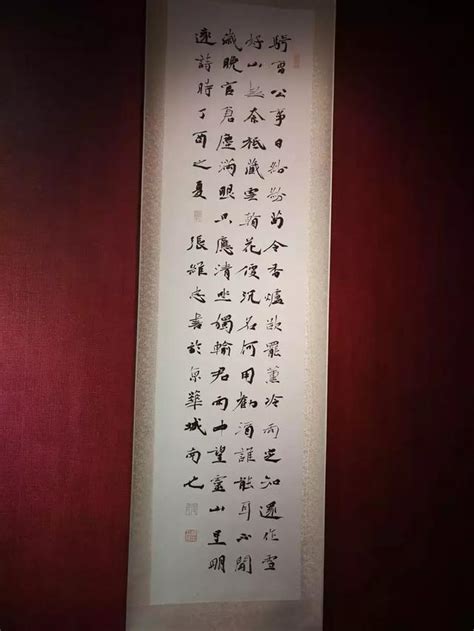 騎曹公事日紛紛荀令香爐欲罷薰冷雨豈知還作雪
好山無奈秪藏雲花便沉名何用勸酒誰能耳不聞
歲晚官塵滿眼只應清坐獨輸君雨中望靈山呈明
遠詩時丁酉之夏張忠書於京華城南也